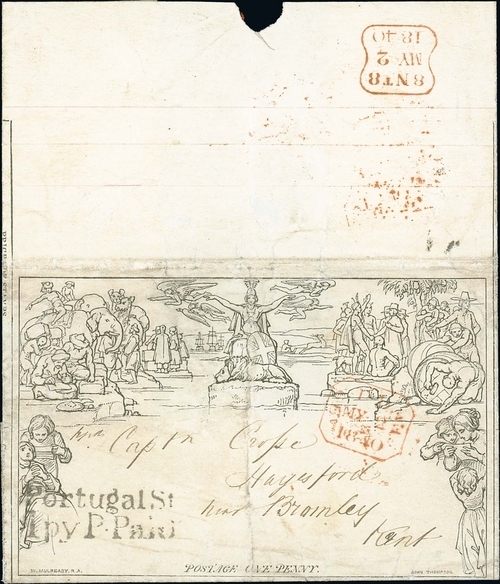 8NT8
MY 2
1840
Mrs Captn Crose
Hayesford
near Bromley
Kent
Portugal St
1py P. Paid
W. MULREADY. R.A.
POSTAGE ONE PENNY.
JOHN THOMPSON